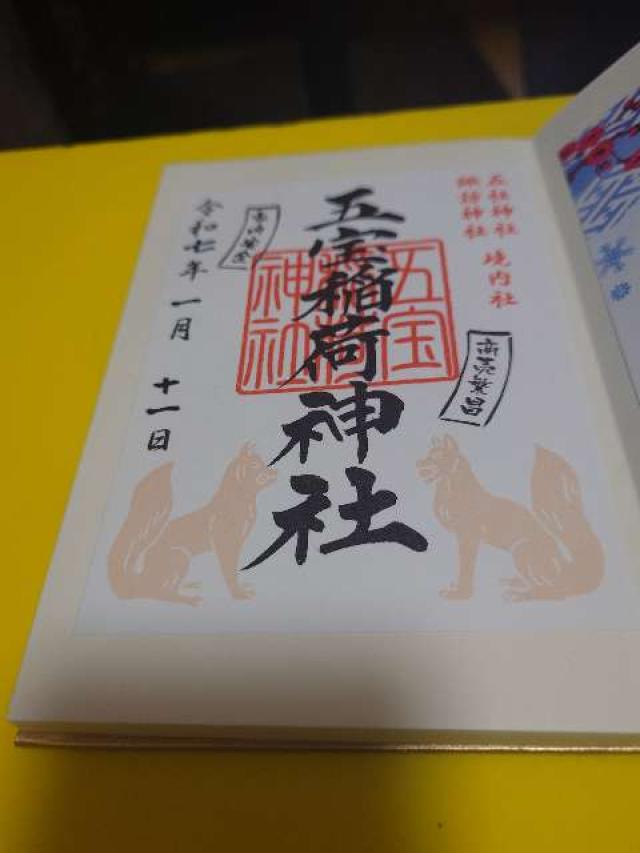 五社神社
諏訪神社 境内社
商売繁昌
五宝稲荷神社
五宝
稲荷
神社
令和七年 一月 十一日